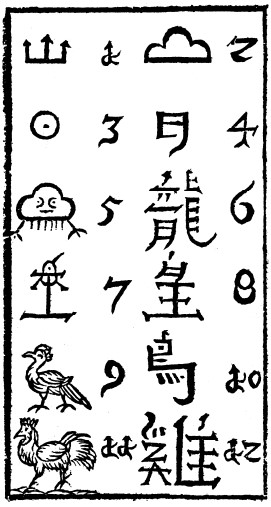 1 2
3 4
5 龍 6
7 皇 8
9 鳥 10
11 雞 12